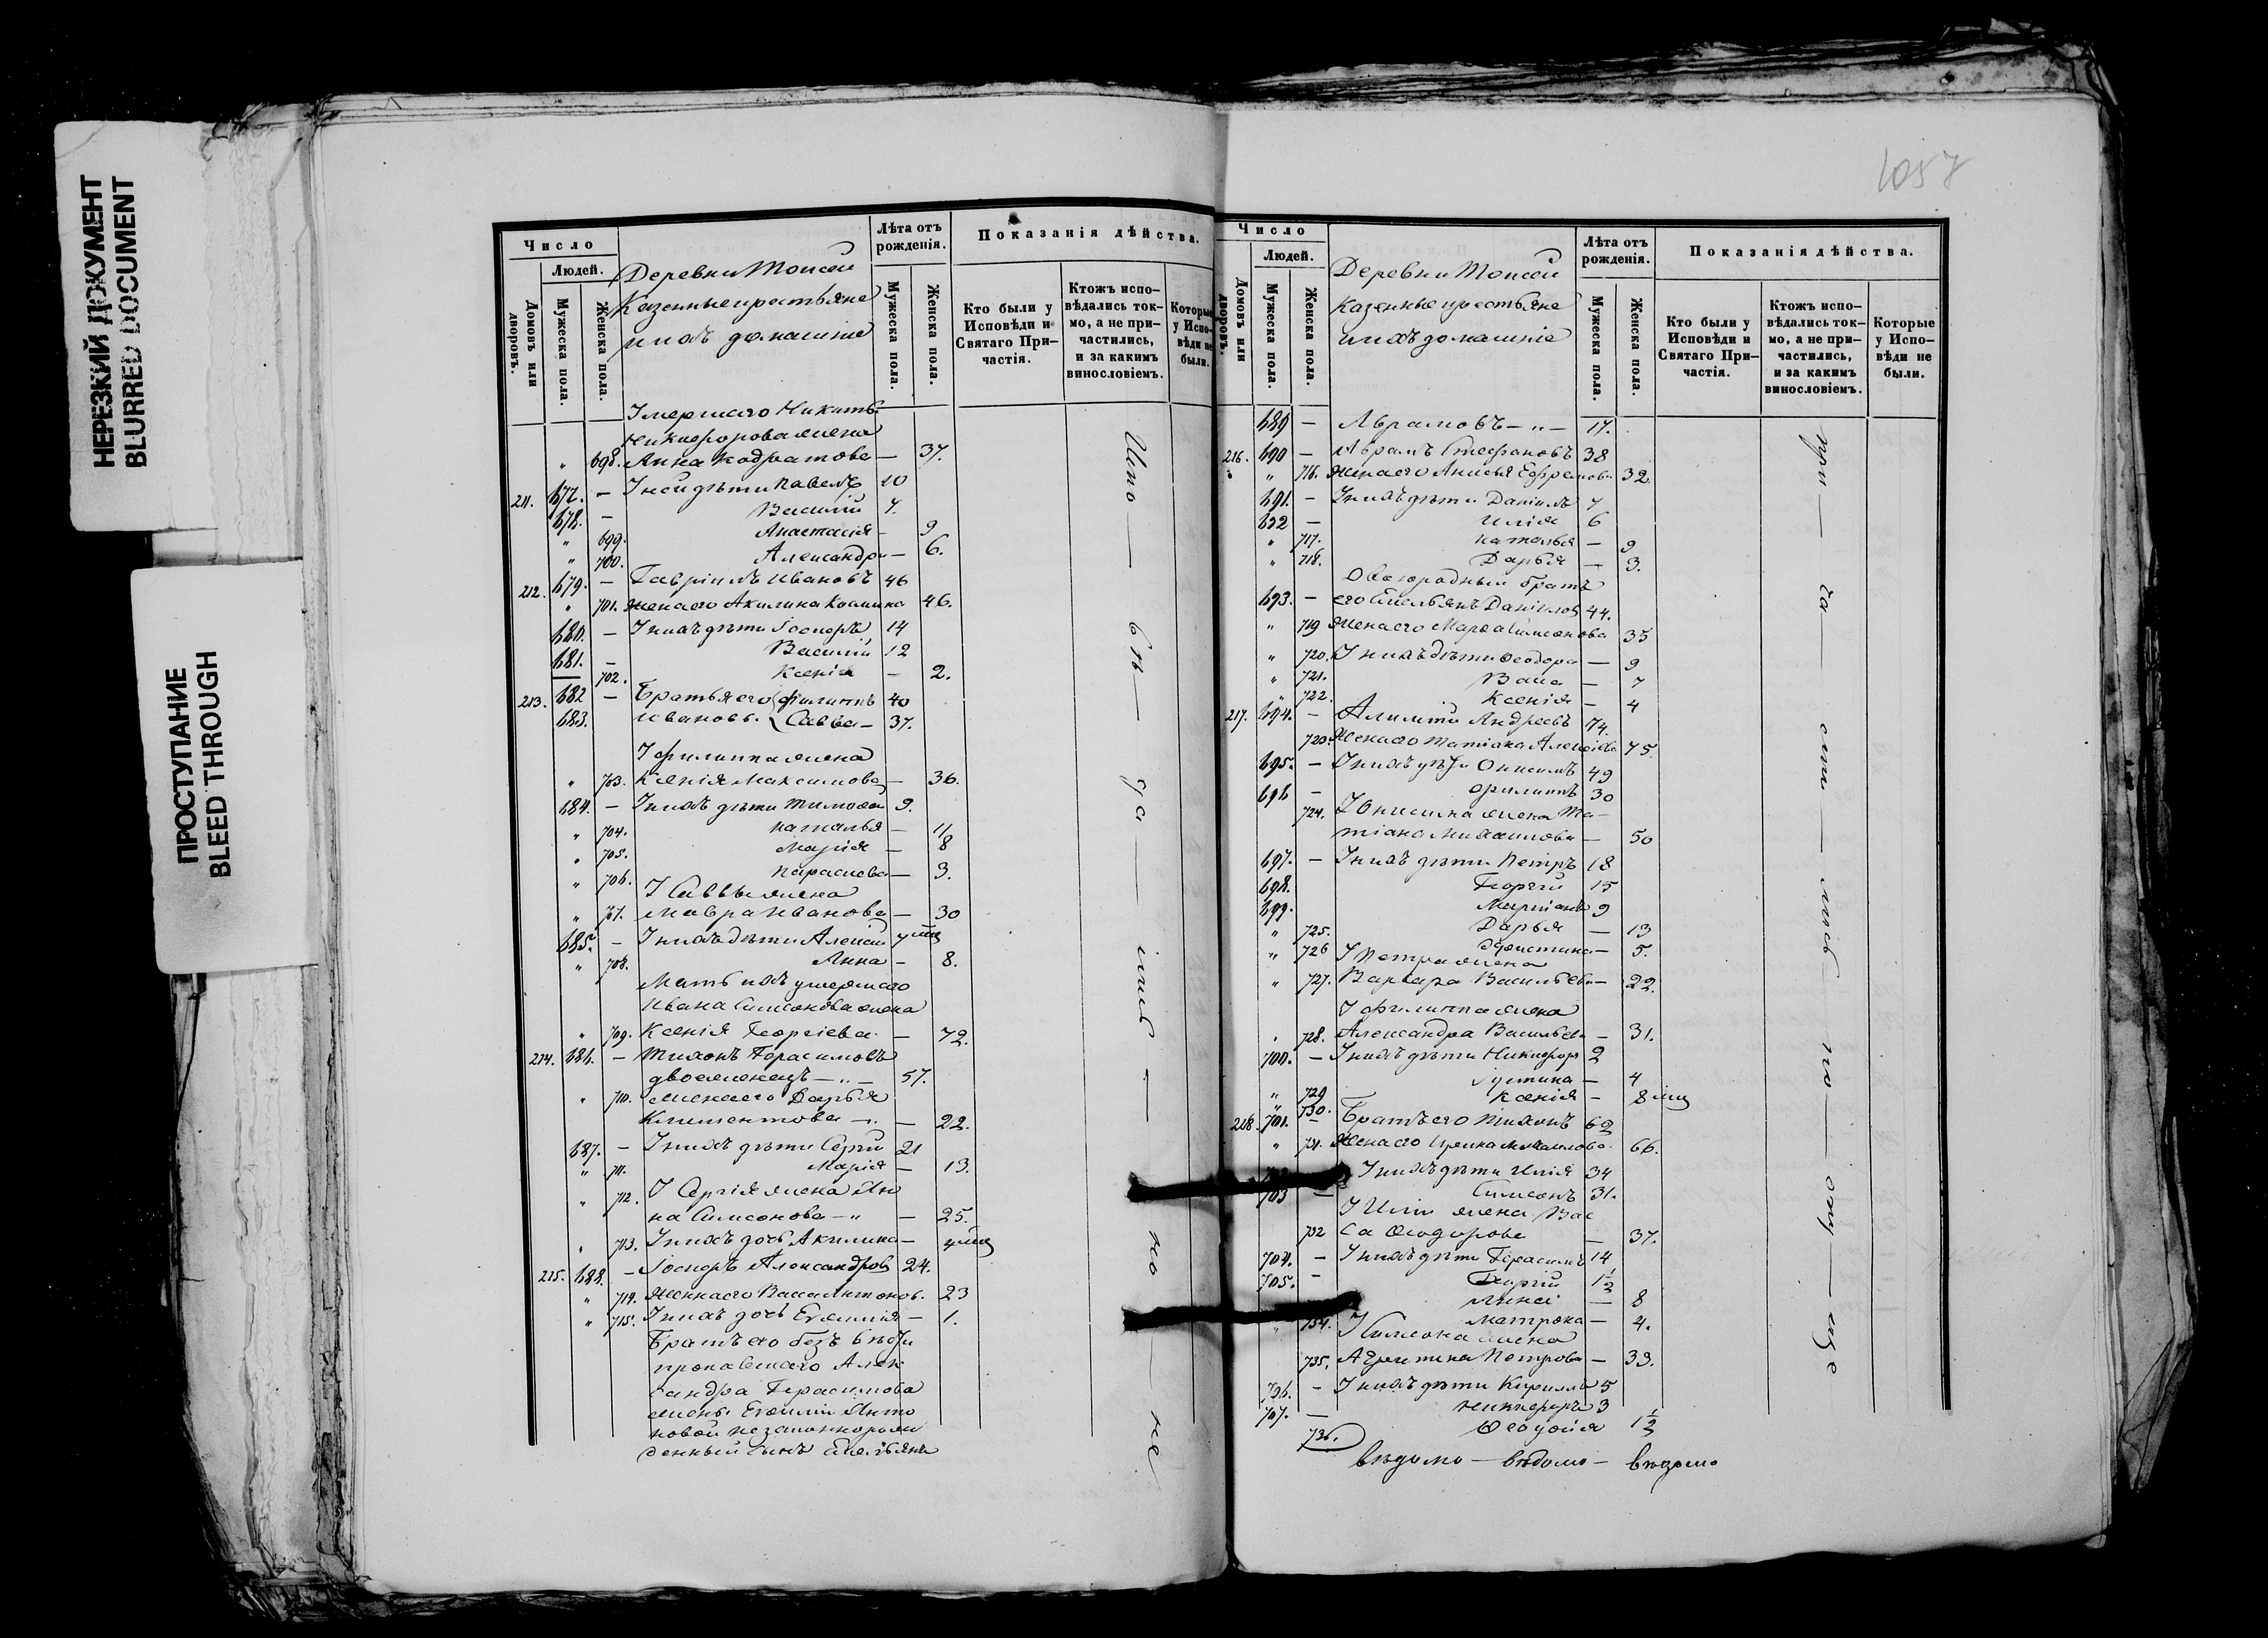 НЕРЕЗКИЙ ДОКУМЕНТ
BLURRED DOCUMENT
ПРОСТУПАНИЕ
BLEED THROUGH
1057
Число
Людей.
Домовъ или дворовъ.
Мужеска пола.
Женска пола.
Деревни Моисеи
Казенные крестьяне
и ихъ домашніе
Лѣта отъ рожденія.
Мужеска пола.
Женска пола.
Показанія дѣйства.
Кто были у Исповѣди и Святаго При-частія.
Ктожъ испо-вѣдались ток-мо, а не при-частились, и за какимъ винословіемъ.
Которые у Испо-вѣди не были.
Умершаго Никиты
Никифорова жена
" 698. Анна Кодратова — 37.
211. 677. — У ней дѣти Павелъ 10
678. — Василій 7.
" 699. Анастасія — 9
" 700. Александра — 6.
212. 679. — Гавріилъ Ивановъ 46
" 701. жена его Акилина Козмина 46.
680. — У нихъ дѣти Іосифъ 14
681. — Василій 12
702. Ксенія — 2.
213. 682 — Братья его Филиппъ 40
683. Ивановы. Савва — 37.
У Филиппа жена
" 703. Ксенія Максимова — 36.
684. — У нихъ дѣти Тимофей 9.
" 704. Наталья — 11
" 705. Марія — 8
" 706. Параскева — 3.
У Саввы жена
" 707. Мавра Иванова — 30
685. — У нихъ дѣти Алексій 7 мц
" 708. Анна — 8.
Мать ихъ умершаго
Ивана Симеонова жена
" 709. Ксенія Георгіева — 72.
214. 686. — Тихонъ Герасимовъ
двоеженецъ — " — 57.
" 710. жена его Дарья
Климентова — " — 22.
687. — У нихъ дѣти Сергій 21
" 711. Марія — 13.
" 712. У Сергія жена Ан
на Симеонова — " — 25.
" 713. У нихъ дочь Акилина — 4 мц
215. 688. — Іосифъ Александровъ 24.
" 714. Жена его Васса Антонов. 23
" 715. У нихъ дочь Евфимія — 1.
Братъ его безъ вѣсти
пропавшаго Алек
сандра Герасимова
жены Евфиміи Анто
новой незаконнорож
денный сынъ Емельянъ
Ито — въ — де — не
Число
Людей.
Домовъ или дворовъ.
Мужеска пола.
Женска пола.
Деревни Моисеи
Казенные крестьяне
и ихъ домашніе
Лѣта отъ рожденія.
Мужеска пола.
Женска пола.
Показанія дѣйства.
Кто были у Исповѣди и Святаго При-частія.
Ктожъ испо-вѣдались ток-мо, а не при-частились, и за какимъ винословіемъ.
Которые у Испо-вѣди не были.
689 — Абрамовъ — " — 17.
216. 690 — Абрамъ Стефановъ 38
" 716. Жена его Анисья Ефремова 32.
691. — У нихъ дѣти Даніилъ 7
692 — Илія 6
" 717. Наталья — 9
" 718. Дарья — 3.
Двоюродный братъ
693. — его Емельянъ Даніиловъ 44.
" 719 Жена его Марфа Симеонова 35
" 720. У нихъ дѣти Феодора — 9
" 721. Васса — 7
" 722. Ксенія — 4
217. 694. — Алимпій Андреевъ 74.
723. Жена его Татіана Алексіева 75.
695. — У нихъ дѣти Онисимъ 49
696 — Филиппъ 30
724. У Онисима жена Та-
тіана Михаилова — 50
697. — У нихъ дѣти Петръ 18
698. Георгій 15
699. 9
" 725. Дарья — 13
" 726 — 5.
У Петра жена
" 727. Варвара Васильева — 22.
У Филиппа жена
" 728. Александра Васильева — 31.
700. — У нихъ дѣти Никифоръ 2
" 729 Іустина — 4
" 730. Ксенія — 8 мц
218. 701. — Братъ его Тихонъ 62
" 731. Жена его Ирина Михаилова 66.
У нихъ дѣти Илія 34
703 — Симеонъ 31.
У Иліи жена Вас
732 са Феодорова — 37.
704. — У нихъ дѣти Герасимъ 14
705. — Георгій 1½
— 8
734. Матрона — 4.
У Симеона жена
735. Петрова — 33.
706. — У нихъ дѣти Кириллъ 5
707. — Никифоръ 3
736. Феодосія 1½
вѣдомо — вѣдомо — вѣдомо